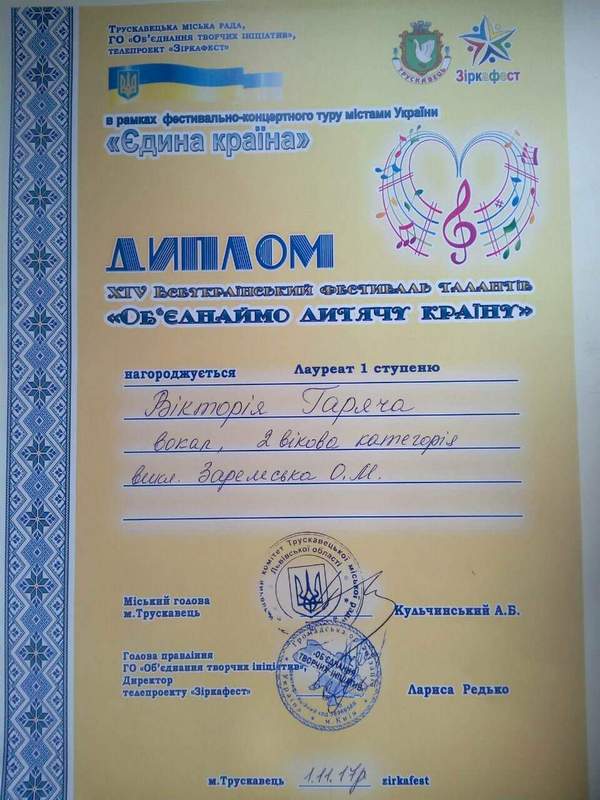 Трускавецька міська рада,
ГО «Об'єднання творчих ініціатив»,
телепроект «Зіркафест»
ТРУСКАВЕЦЬ
Зіркафест
в рамках фестивально-концертного туру містами України
«Єдина країна»
ДИПЛОМ
XIV Всеукраїнський фестиваль талантів
«Об'єднаймо дитячу країну»
нагороджується Лауреат 1 ступеню
Вікторія Гаряча
вокал, 2 вікова категорія
викл. Заремська О.М.
Трускавецької міської ради
Львівської області
Міський голова
м.Трускавець
Кульчинський А.Б.
Громадська організація
ОБ'ЄДНАННЯ
ТВОРЧИХ ІНІЦІАТИВ
м.Київ
Голова правління
ГО «Об'єднання творчих ініціатив»,
Директор
телепроекту «Зіркафест»
Лариса Редько
м.Трускавець 1.11.17р zirkafest